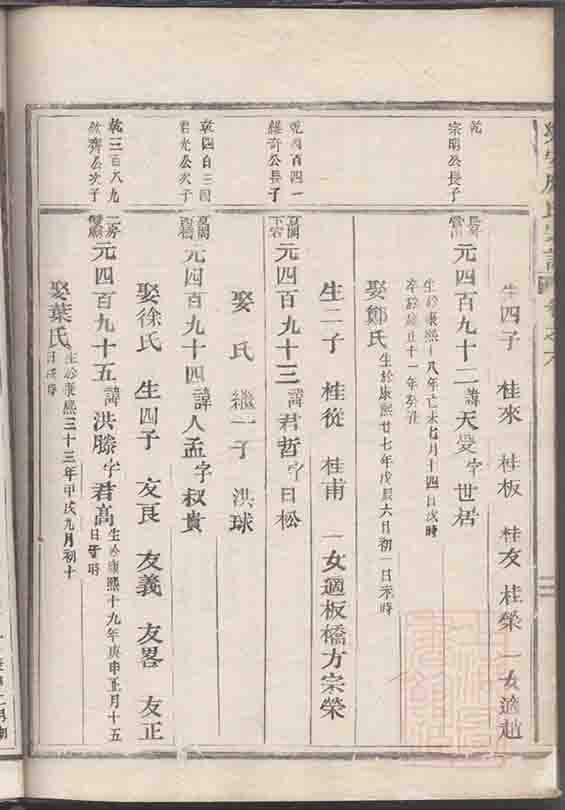 生四子 桂來 桂板 桂友 桂榮 一女適趙
乾
宗明公長子
長房
元四百九十二諱天受字世居
生於康熙十八年己未七月十四日戌時
卒於雍正十一年癸丑
娶鄭氏
生於康熙廿七年戊辰六月初一日未時
生二子 桂從 桂甫 一女適板橋方宗榮
乾四百四一
公長子
元四百九十三諱君哲字日松
娶 氏 繼一子 洪球
乾四百三四
君允公次子
元四百九十四諱人孟字叔貴
娶徐氏 生四子 友良 友義 友畧 友正
乾三百八九
公次子
二房
元四百九十五諱洪滕字君高
生於康熙十九年庚申正月十五
日子時
娶葉氏
生於康熙三十三年甲戌九月初十
日戌時